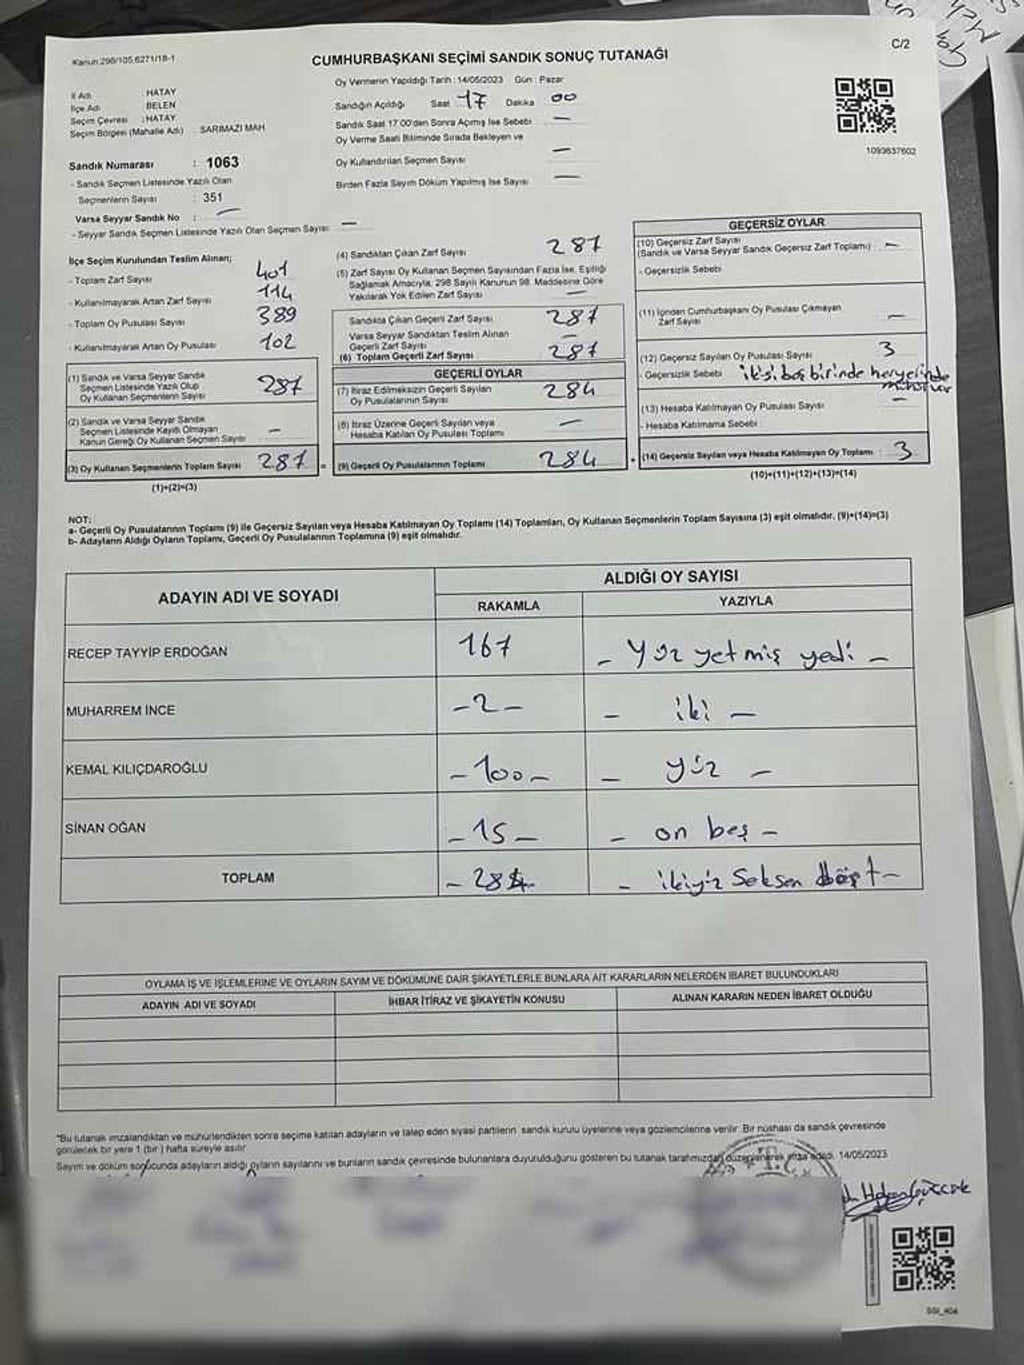 Kanun:298/105,6271/18-1
C/2
CUMHURBAŞKANI SEÇİMİ SANDIK SONUÇ TUTANAĞI
İl Adı : HATAY
İlçe Adı : BELEN
Seçim Çevresi : HATAY
Seçim Bölgesi (Mahalle Adı) : SARIMAZI MAH
Sandık Numarası : 1063
- Sandık Seçmen Listesinde Yazılı Olan
Seçmenlerin Sayısı : 351
Varsa Seyyar Sandık No : —
- Seyyar Sandık Seçmen Listesinde Yazılı Olan Seçmen Sayısı : —
Oy Vermenin Yapıldığı Tarih : 14/05/2023 Gün : Pazar
Sandığın Açıldığı Saat 17 Dakika 00
Sandık Saat 17:00'den Sonra Açmış İse Sebebi —
Oy Verme Saati Bitiminde Sırada Bekleyen ve
Oy Kullandırılan Seçmen Sayısı —
Birden Fazla Sayım Döküm Yapılmış İse Sayısı —
1093637602
İlçe Seçim Kurulundan Teslim Alınan;
- Toplam Zarf Sayısı 401
- Kullanılmayarak Artan Zarf Sayısı 114
- Toplam Oy Pusulası Sayısı 389
- Kullanılmayarak Artan Oy Pusulası 102
(1) Sandık ve Varsa Seyyar Sandık
Seçmen Listesinde Yazılı Olup
Oy Kullanan Seçmenlerin Sayısı 287
(2) Sandık ve Varsa Seyyar Sandık
Seçmen Listesinde Kayıtlı Olmayan
Kanun Gereği Oy Kullanan Seçmen Sayısı —
(3) Oy Kullanan Seçmenlerin Toplam Sayısı 287 =
(1)+(2)=(3)
(4) Sandıktan Çıkan Zarf Sayısı 287
(5) Zarf Sayısı Oy Kullanan Seçmen Sayısından Fazla İse, Eşitliği
Sağlamak Amacıyla; 298 Sayılı Kanunun 98. Maddesine Göre
Yakılarak Yok Edilen Zarf Sayısı —
Sandıkta Çıkan Geçerli Zarf Sayısı 287
Varsa Seyyar Sandıktan Teslim Alınan
Geçerli Zarf Sayısı —
(6) Toplam Geçerli Zarf Sayısı 287
GEÇERLİ OYLAR
(7) İtiraz Edilmeksizin Geçerli Sayılan
Oy Pusulalarının Sayısı 284
(8) İtiraz Üzerine Geçerli Sayılan veya
Hesaba Katılan Oy Pusulası Toplamı —
(9) Geçerli Oy Pusulalarının Toplamı 284 +
GEÇERSİZ OYLAR
(10) Geçersiz Zarf Sayısı
(Sandık ve Varsa Seyyar Sandık Geçersiz Zarf Toplamı) : —
- Geçersizlik Sebebi
(11) İçinden Cumhurbaşkanı Oy Pusulası Çıkmayan
Zarf Sayısı —
(12) Geçersiz Sayılan Oy Pusulası Sayısı 3
- Geçersizlik Sebebi ikisi boş birinde heryerinde
mühür var
(13) Hesaba Katılmayan Oy Pusulası Sayısı —
- Hesaba Katılmama Sebebi
(14) Geçersiz Sayılan veya Hesaba Katılmayan Oy Toplamı : 3
(10)+(11)+(12)+(13)=(14)
NOT:
a- Geçerli Oy Pusulalarının Toplamı (9) ile Geçersiz Sayılan veya Hesaba Katılmayan Oy Toplamı (14) Toplamları, Oy Kullanan Seçmenlerin Toplam Sayısına (3) eşit olmalıdır. (9)+(14)=(3)
b- Adayların Aldığı Oyların Toplamı, Geçerli Oy Pusulalarının Toplamına (9) eşit olmalıdır.
ADAYIN ADI VE SOYADI
ALDIĞI OY SAYISI
RAKAMLA YAZIYLA
RECEP TAYYİP ERDOĞAN 167 – Yüz yetmiş yedi –
MUHARREM İNCE –2– – iki –
KEMAL KILIÇDAROĞLU –100– – yüz –
SİNAN OĞAN –15– – on beş –
TOPLAM – 284 – – ikiyüz Seksen dört –
OYLAMA İŞ VE İŞLEMLERİNE VE OYLARIN SAYIM VE DÖKÜMÜNE DAİR ŞİKAYETLERLE BUNLARA AİT KARARLARIN NELERDEN İBARET BULUNDUKLARI
ADAYIN ADI VE SOYADI İHBAR İTİRAZ VE ŞİKAYETİN KONUSU ALINAN KARARIN NEDEN İBARET OLDUĞU
*Bu tutanak imzalandıktan ve mühürlendikten sonra seçime katılan adayların ve talep eden siyasi partilerin sandık kurulu üyelerine veya gözlemcilerine verilir. Bir nüshası da sandık çevresinde
görülecek bir yere 1 (bir ) hafta süreyle asılır
Sayım ve döküm sonucunda adayların aldığı oyların sayılarını ve bunların sandık çevresinde bulunanlara duyurulduğunu gösteren bu tutanak tarafımızdan düzenlenerek imza edildi. 14/05/2023
T.C.